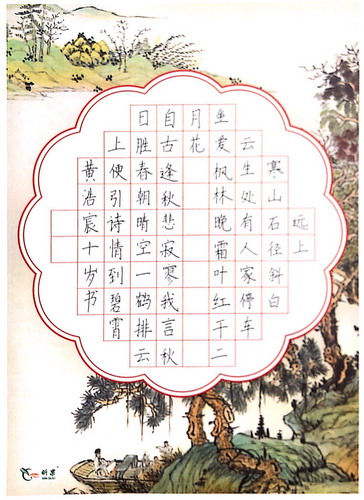 远上
寒山石径斜白
云生处有人家停车
坐爱枫林晚霜叶红于二
月花
自古逢秋悲寂寥我言秋
日胜春朝晴空一鹤排云
上便引诗情到碧霄
黄浩宸十岁书